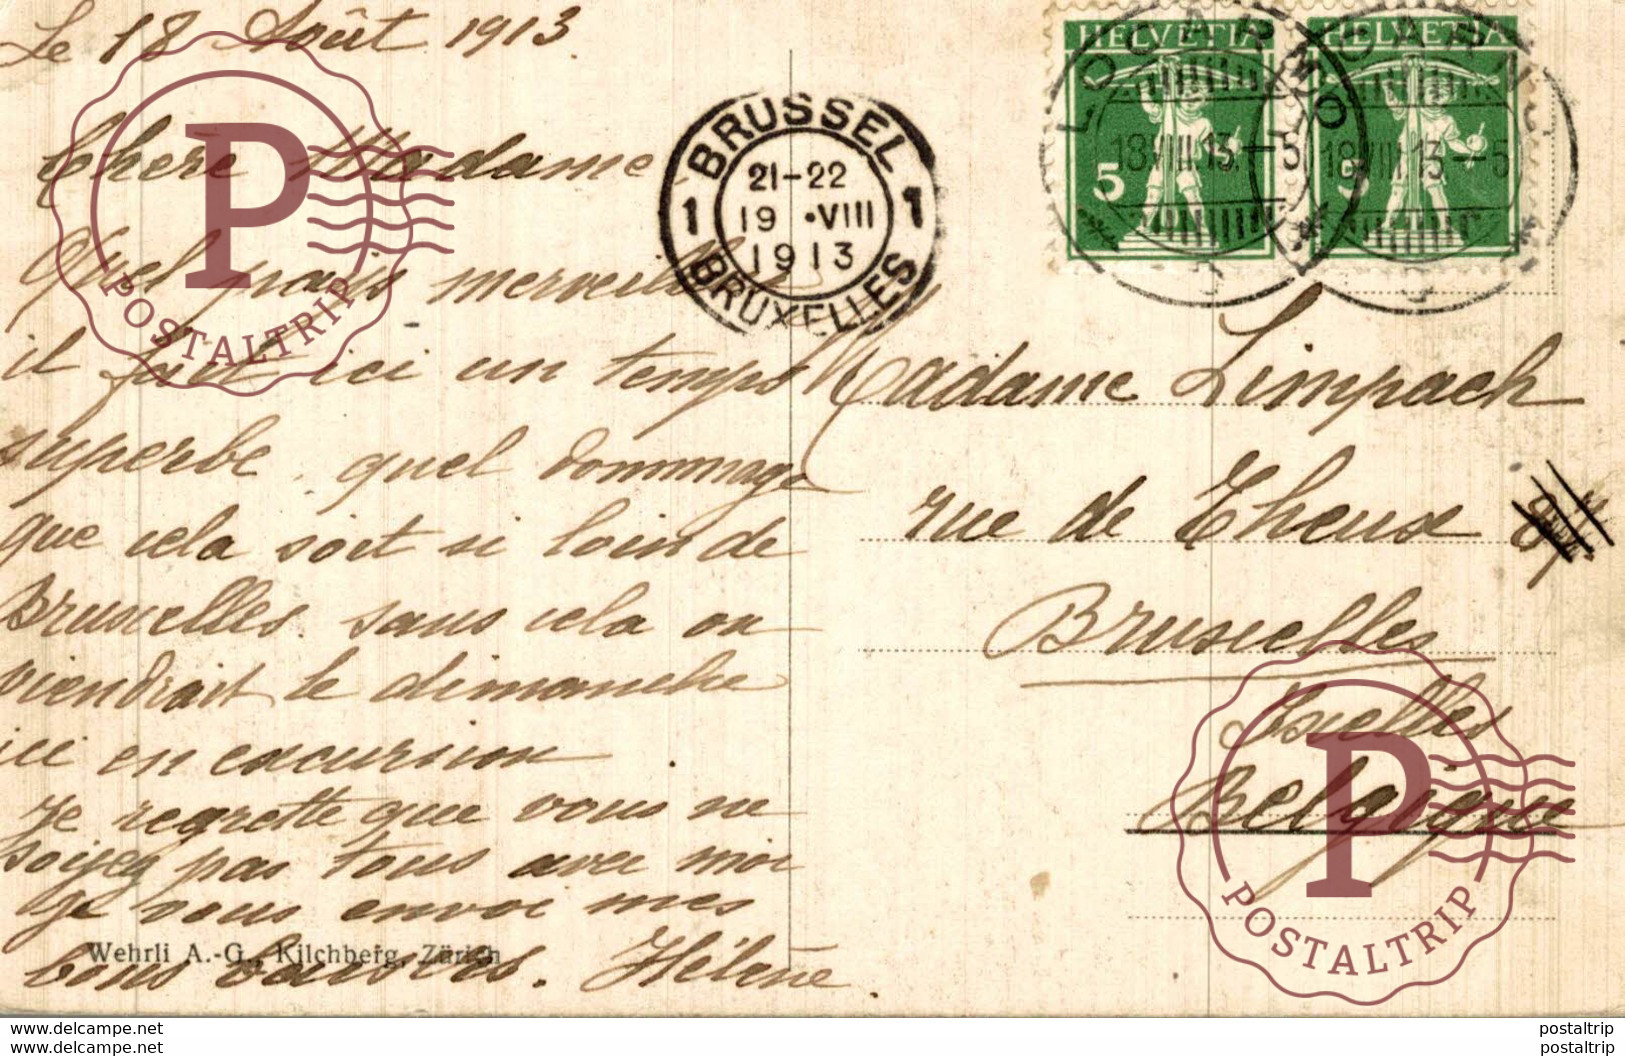 Le 18 Août 1913
Chère Madame
Quel pais merveilleux
il fait ici un temps
superbe. quel dommage
que cela soit si loin de
Bruxelles. sans cela on
viendrait le dimanche
ici en excursion
Je regrette que vous ne
soyez pas tous avec moi
Je vous envoi mes
bons baisers. Hélène.
Wehrli A.-G., Kilchberg, Zürich
BRUSSEL
1 1
21-22
19 •VIII
1913
BRUXELLES
HELVETIA
5
HELVETIA
5
LOCARNO
18.VIII.13.-5
LOCARNO
18.VIII.13.-5
Madame Limpach
rue de Theux
Bruxelles
Ixelles
Belgique
P
POSTALTRIP
P
POSTALTRIP
www.delcampe.net
www.delcampe.net
postaltrip
postaltrip